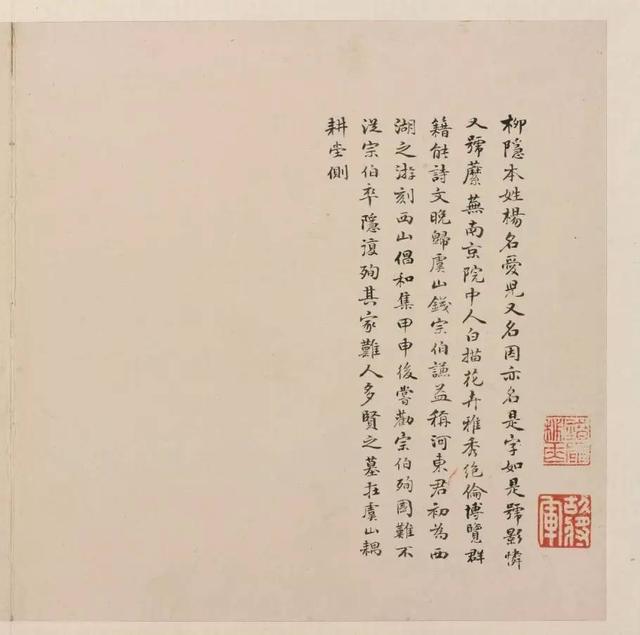 柳隱本姓楊名愛児又名因亦名是字如是號影憐
又號蘼蕪南京院中人白描花卉雅秀絶倫博覽群
籍能詩文晚歸虞山錢宗伯謙益稱河東君初為西
湖之游刻西山倡和集甲申後嘗勸宗伯殉國難不
從宗伯卒隱復殉其家難人多賢之墓在虞山耦
耕堂側
故將軍